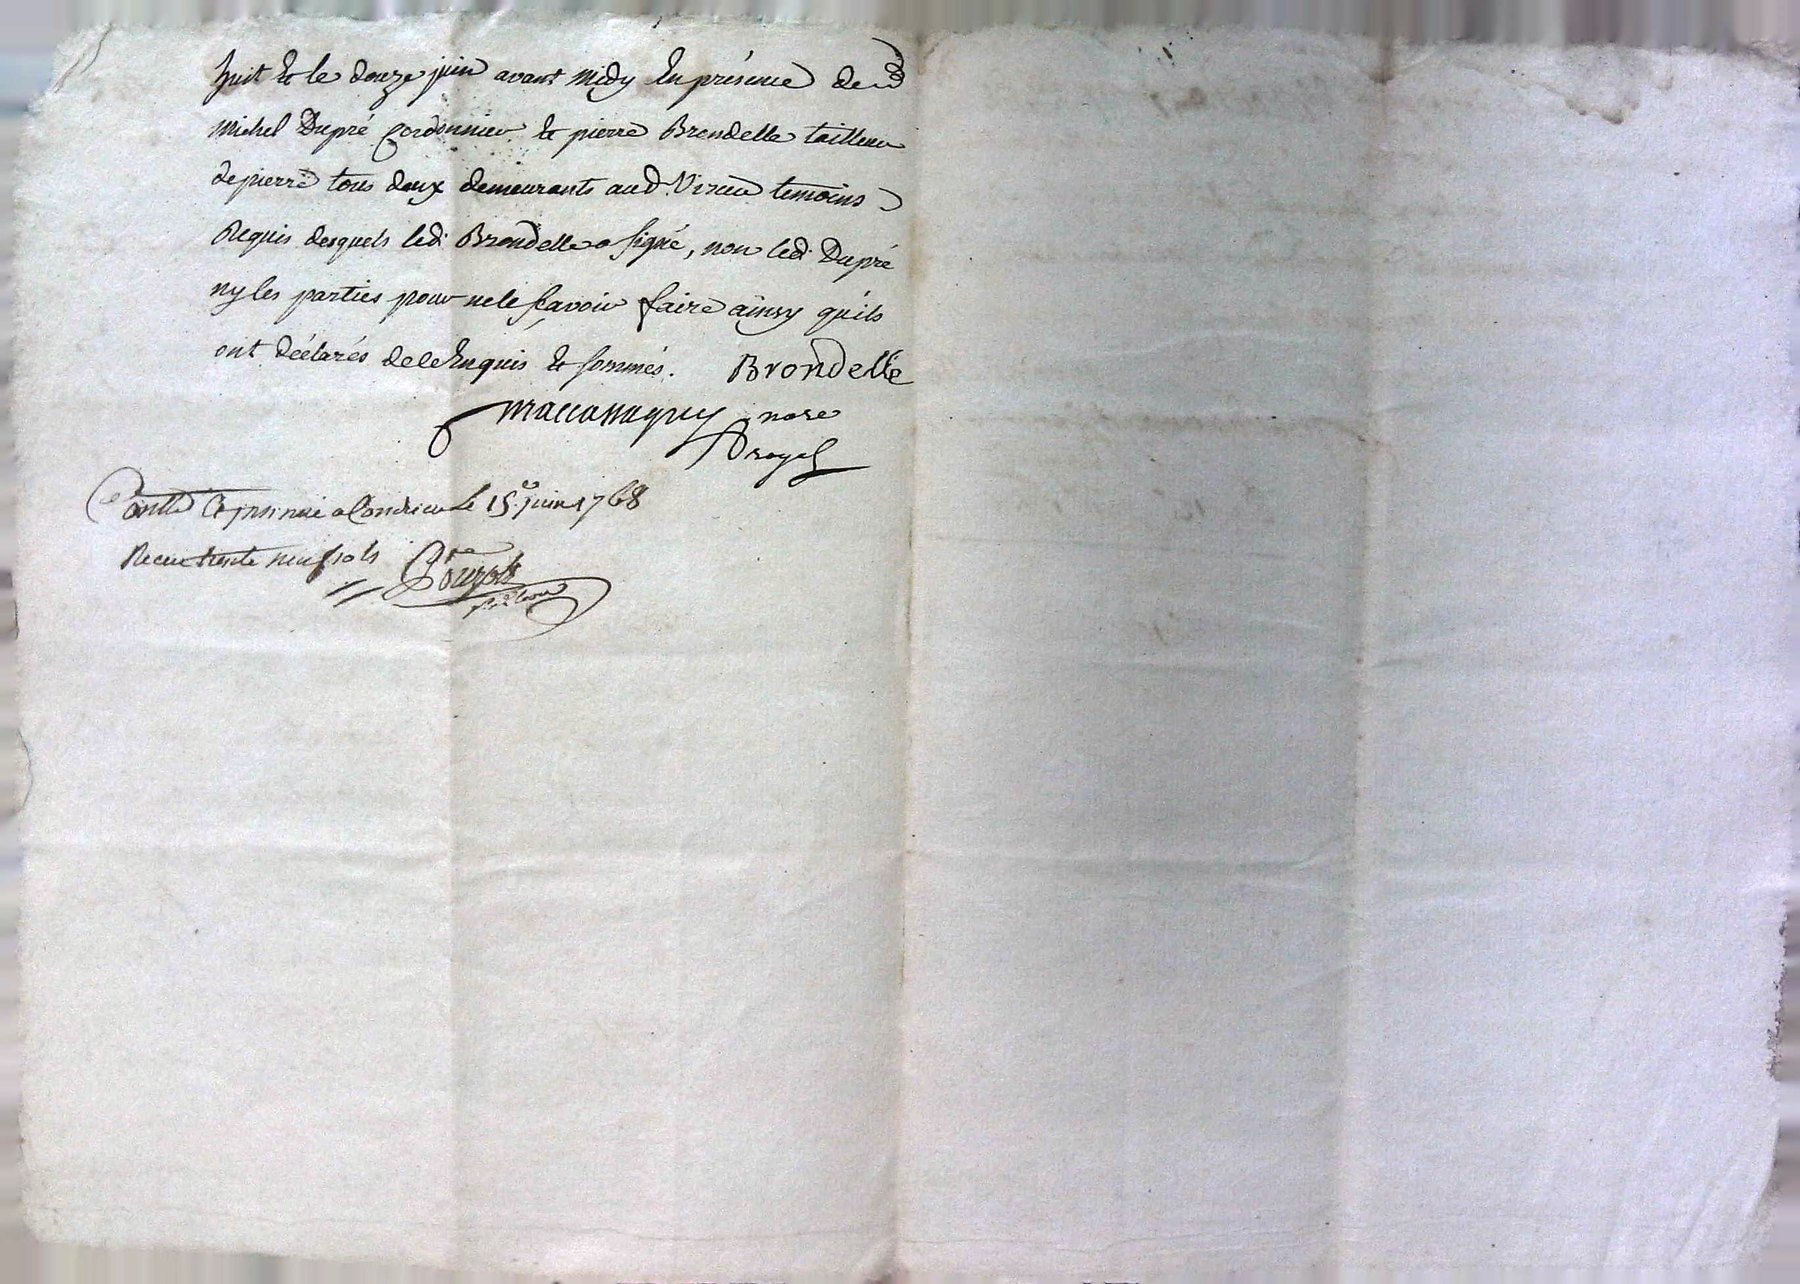 huit & le douze juin avant midy En présence de
Michel Dupré Cordonnier & pierre Brondelle tailleur
de pierre tous deux demeurants aud. Virieu temoins
Requis desquels led. Brondelle a signé, non led. Dupré
ny les parties pour ne le sçavoir faire ainsy qu'ils
ont déclarés de ce Enquis & sommés. Brondelle
Maccamaguy nore
royal
Con.llé & insinué a Condrieu le 15.e juin 1768
Receu trente neuf sols